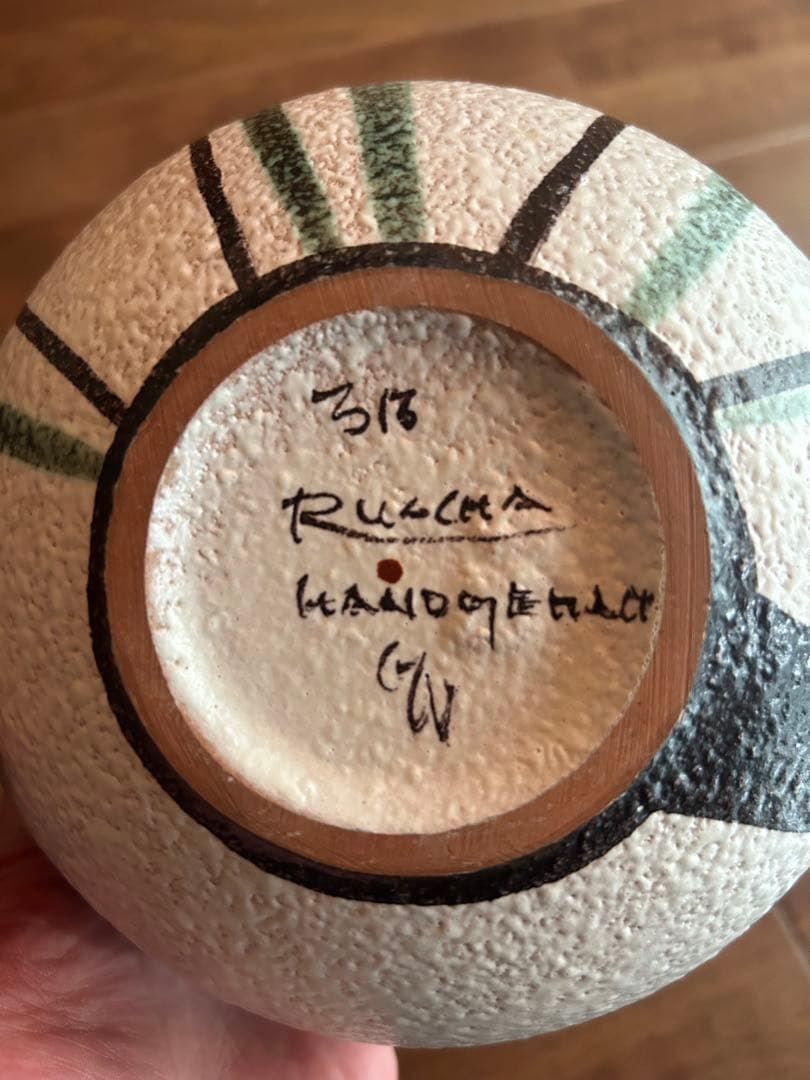 313
RUSCHA
HANDGEMALT